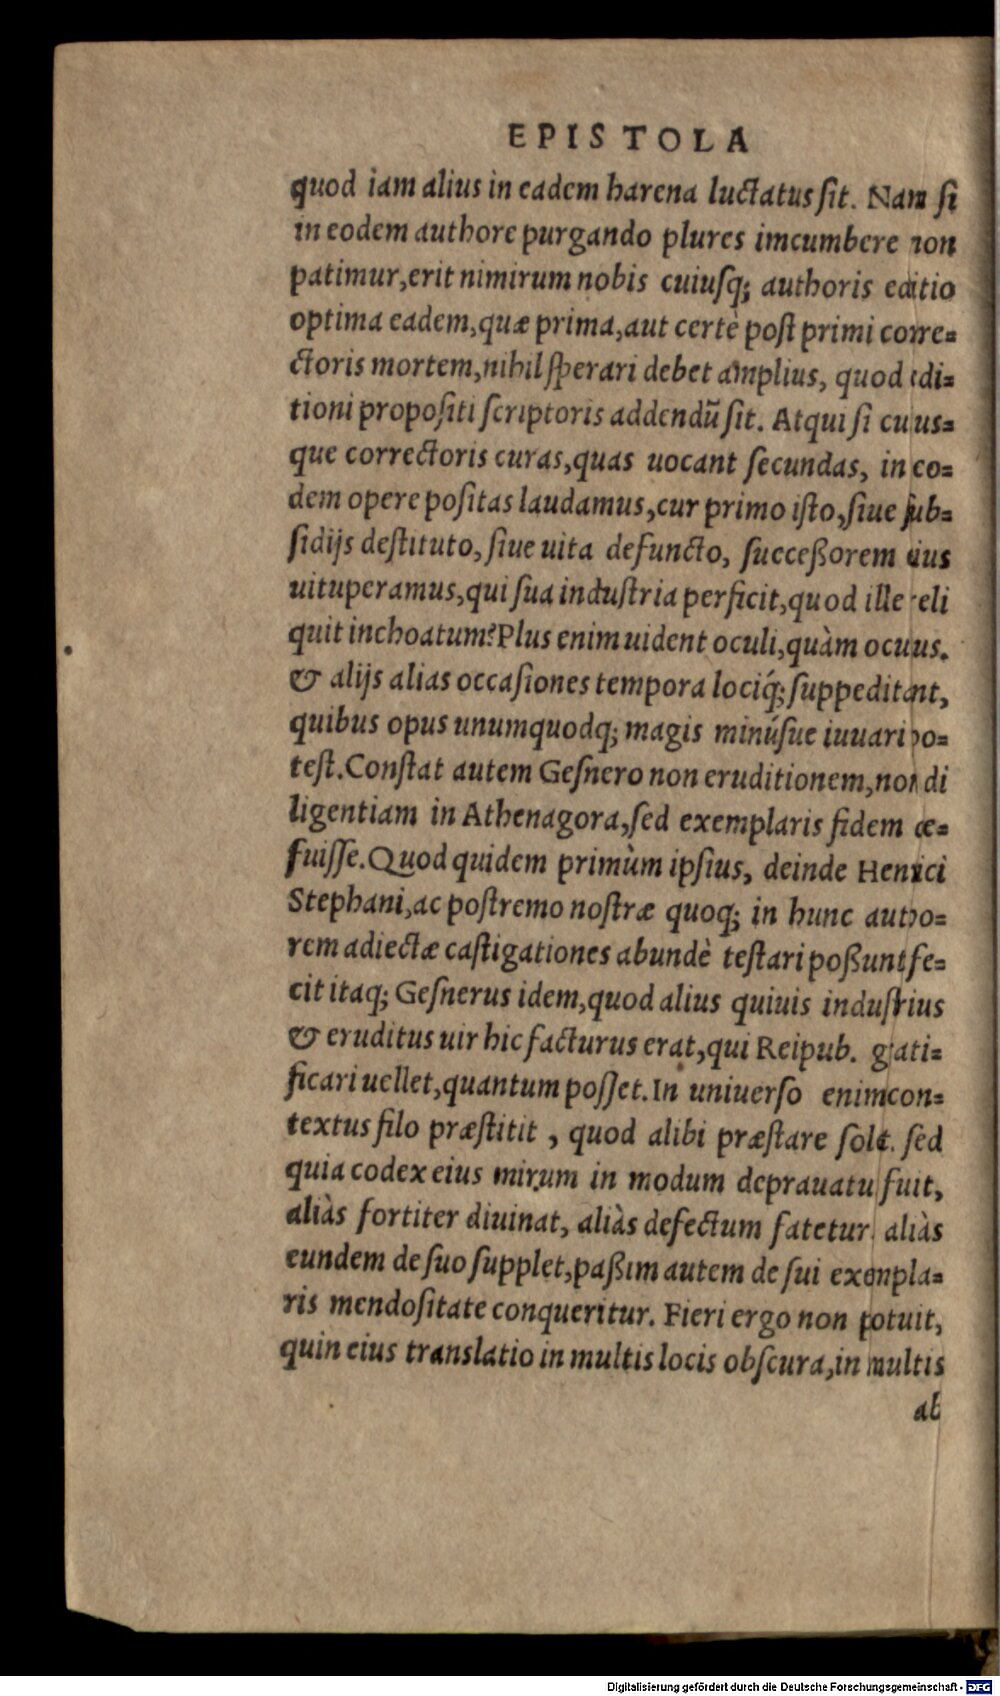 EPISTOLA
quod iam alius in eadem harena luctatus sit. Nam si
in eodem authore purgando plures imcumbere non
patimur, erit nimirum nobis cuiusq; authoris editio
optima eadem, quæ prima, aut certè post primi corre=
ctoris mortem, nihil sperari debet amplius, quod edi=
tioni propositi scriptoris addendū sit. Atqui si cuius=
que correctoris curas, quas uocant secundas, in eo=
dem opere positas laudamus, cur primo isto, siue sub=
sidijs destituto, siue uita defuncto, succeßorem eius
uituperamus, qui sua industria perficit, quod ille reli
quit inchoatum? Plus enim uident oculi, quàm oculus.
& alijs alias occasiones tempora lociq́; suppeditant,
quibus opus unumquodq; magis minúsue iuuari po=
test. Constat autem Gesnero non eruditionem, non di
ligentiam in Athenagora, sed exemplaris fidem de=
fuisse. Quod quidem primùm ipsius, deinde Henrici
Stephani, ac postremo nostræ quoq; in hunc autho=
rem adiectæ castigationes abundè testari poßunt fe=
cit itaq; Gesnerus idem, quod alius quiuis industrius
& eruditus uir hic facturus erat, qui Reipub. grati=
ficari uellet, quantum posset. In uniuerso enim con=
textus filo præstitit, quod alibi præstare solet. sed
quia codex eius mirum in modum deprauatus fuit,
aliàs fortiter diuinat, aliàs defectum fatetur, aliàs
eundem de suo supplet, paßim autem de sui exempla=
ris mendositate conqueritur. Fieri ergo non potuit,
quin eius translatio in multis locis obscura, in multis
ab
Digitalisierung gefördert durch die Deutsche Forschungsgemeinschaft - DFG